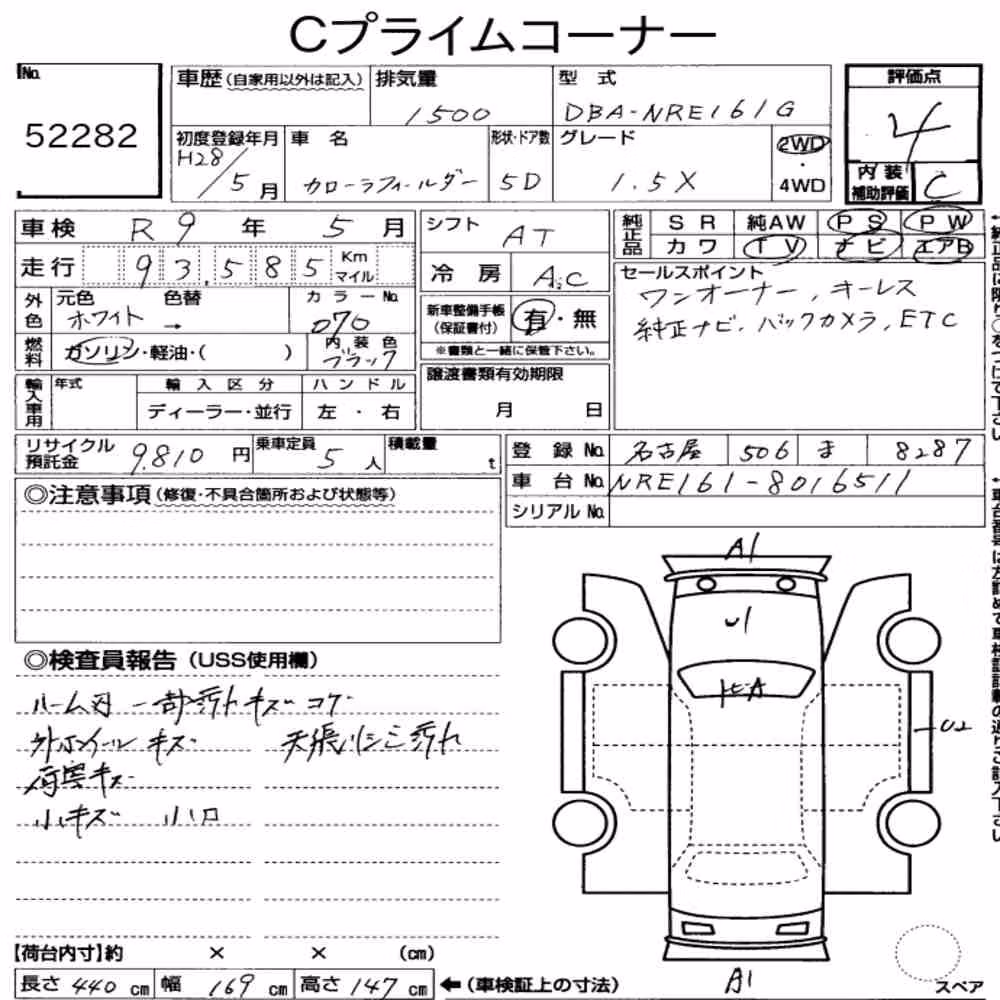 Cプライムコーナー
No. 52282
車歴(自家用以外は記入) 排気量 1500 型式 DBA-NRE161G 評価点 4
初度登録年月 H28/5月 車名 カローラフィールダー 形状・ドア数 5D グレード 1.5X 2WD・4WD 内装補助評価 C
車検 R9年5月 シフト AT 純正品 SR 純AW PS PW
カワ TV ナビ エアB
走行 93,585 Km マイル 冷房 A.C セールスポイント
ワンオーナー, キーレス
純正ナビ, バックカメラ, ETC
外色 元色 ホワイト 色替 → カラーNo. 070
新車整備手帳(保証書付) 有・無
※書類と一緒に保管下さい。
燃料 ガソリン・軽油・( ) 内装色 ブラック
輸入車用 年式 輸入区分 ハンドル
ディーラー・並行 左・右
譲渡書類有効期限
月 日
リサイクル預託金 9,810円 乗車定員 5人 積載量 t
登録No. 名古屋 506 ま 8287
車台No. NRE161-8016511
シリアルNo.
◎注意事項(修復・不具合箇所および状態等)
◎検査員報告(USS使用欄)
ルーム内 一部汚れ キズ コゲ
外ホイール キズ 天張りシミ汚れ
荷室キズ
小キズ 小凹
A1
U1
U2
A1
スペア
【荷台内寸】約 × × (cm)
長さ 440 cm 幅 169 cm 高さ 147 cm ←(車検証上の寸法)